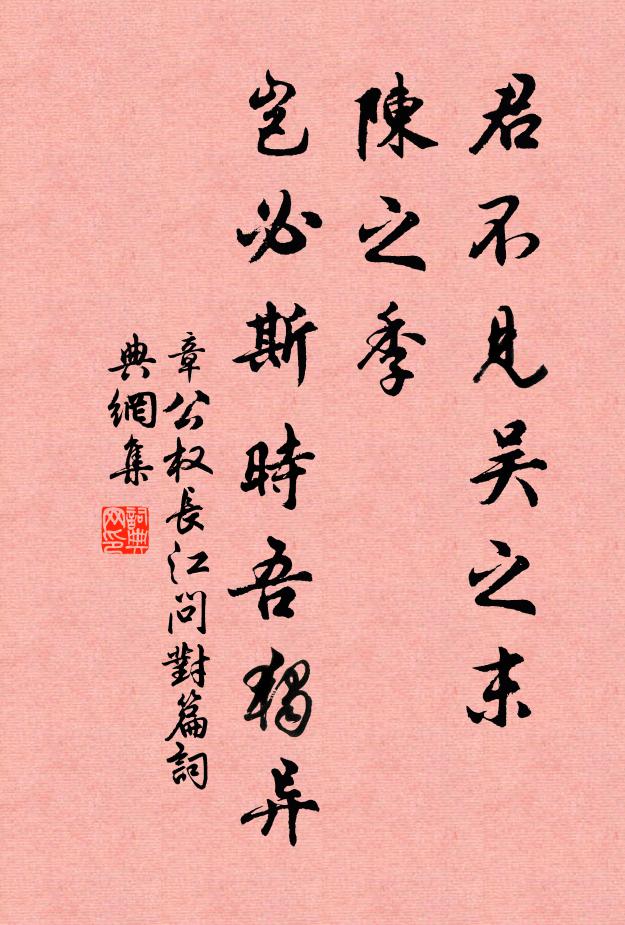 君不見吴之末
陳之季
岂必斯時吾獨异
章公权長江问對篇詞
典網集
詞典网印